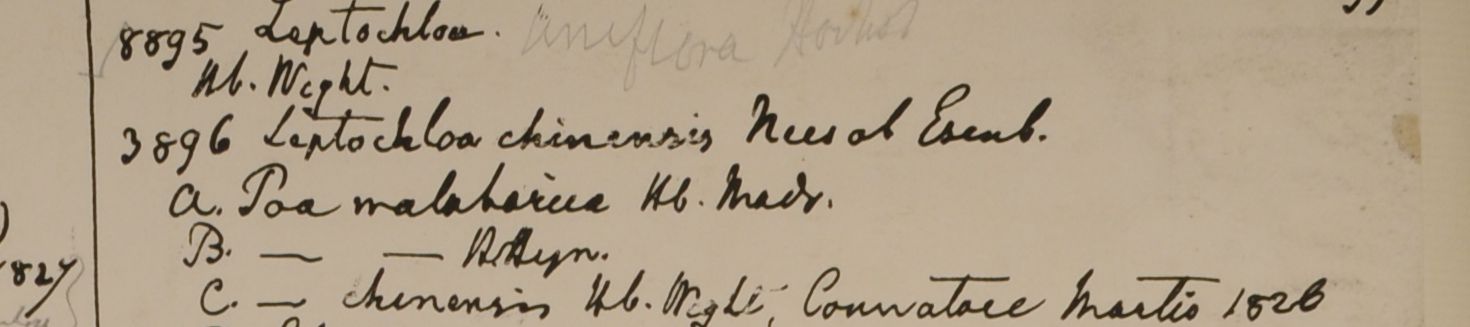 8895 Leptochloa. uniflora Hochst
Hb. Wight.
3896 Leptochloa chinensis Nees ab Esenb.
a. Poa malabarica Hb. Madr.
B. — — Hb Heyn.
C. — chinensis Hb. Wight, Courvatore Martio 1826
1827